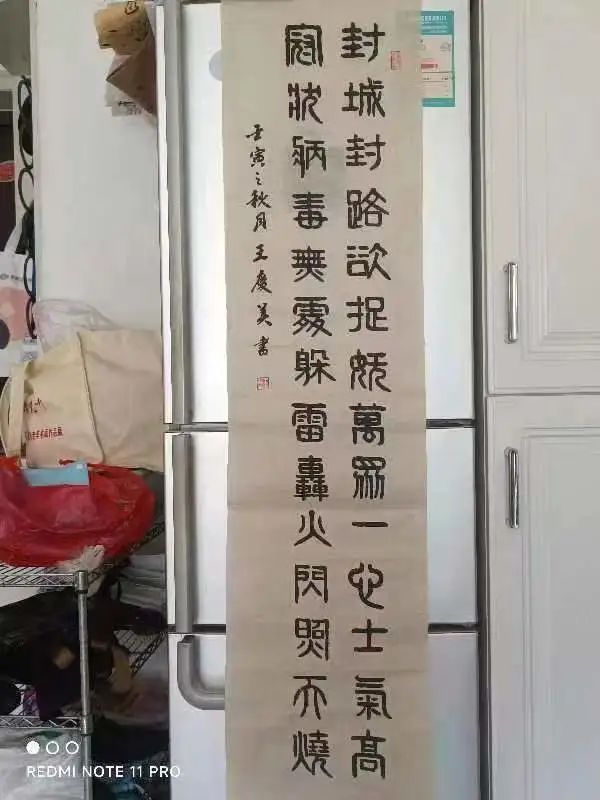 封城封路欲捉妖萬眾一心士氣高
冠狀病毒無處躲雷轟火閃照天燒
壬寅之秋月王慶美書
REDMI NOTE 11 PRO